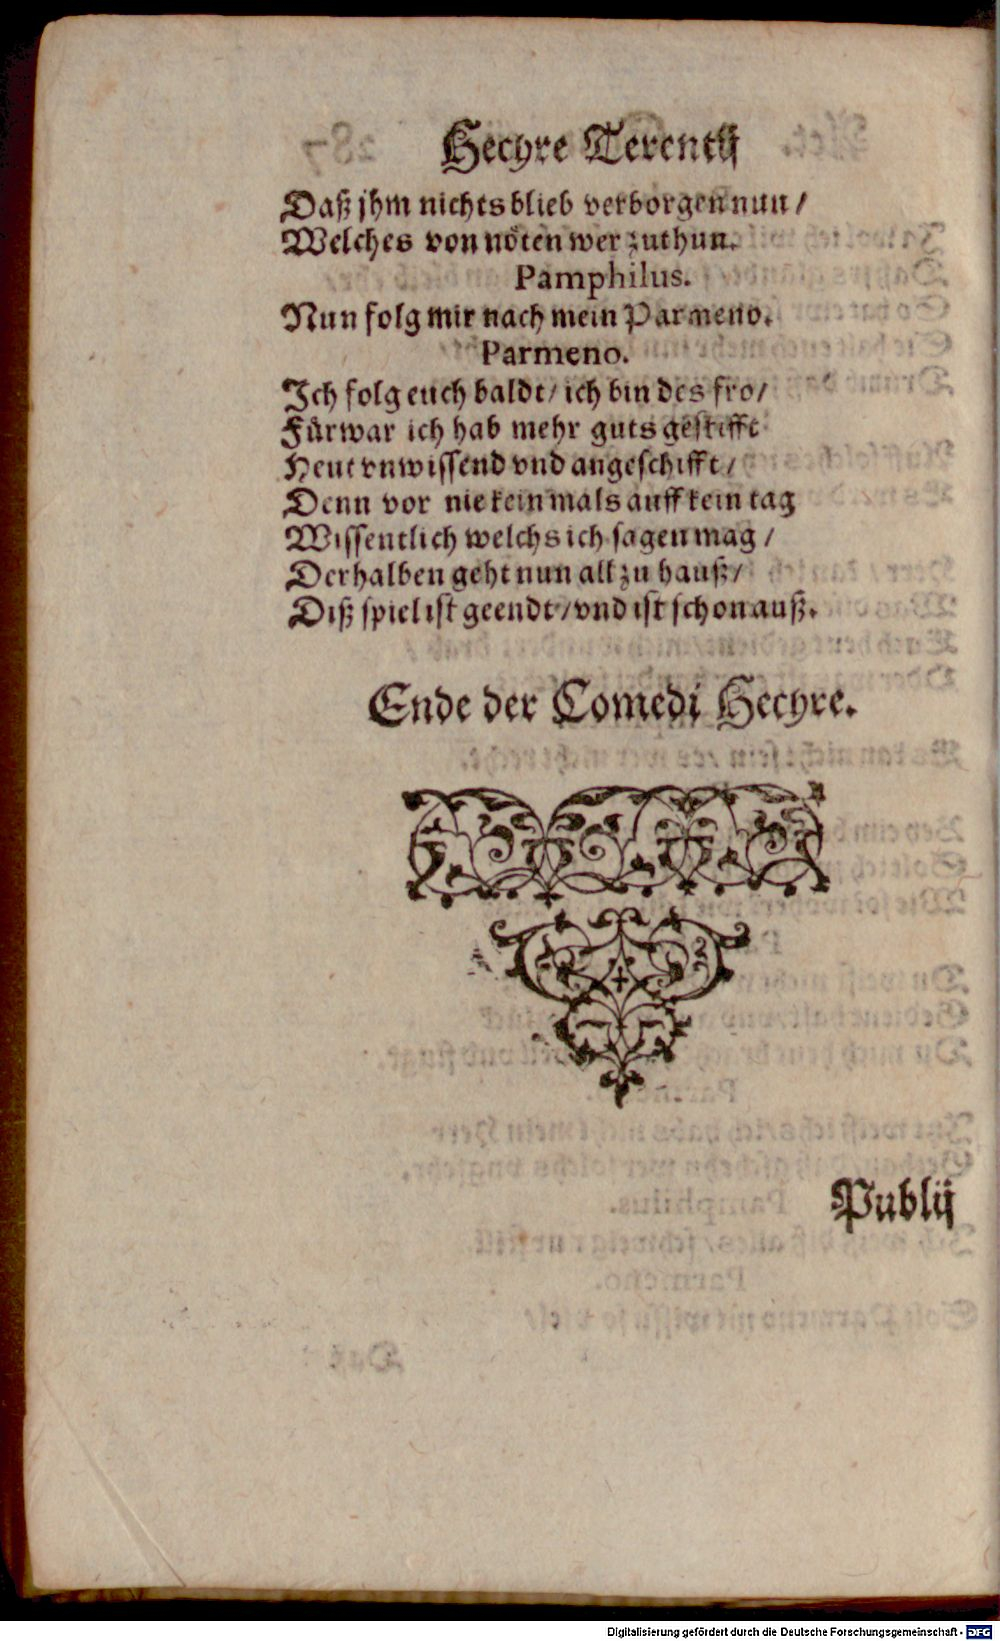 Hecyre Terentij
Daß jhm nichts blieb verborgen nun /
Welches von nöten wer zuthun.
Pamphilus.
Nun folg mir nach mein Parmeno.
Parmeno.
Ich folg euch baldt / ich bin des fro /
Fürwar ich hab mehr guts gestifft
Heut vnwissend vnd angeschifft /
Denn vor nie kein mals auff kein tag
Wissentlich welchs ich sagen mag /
Derhalben geht nun all zu hauß /
Diß spiel ist geendt / vnd ist schon auß.
Ende der Comedi Hecyre.
Publij
Digitalisierung gefördert durch die Deutsche Forschungsgemeinschaft - DFG